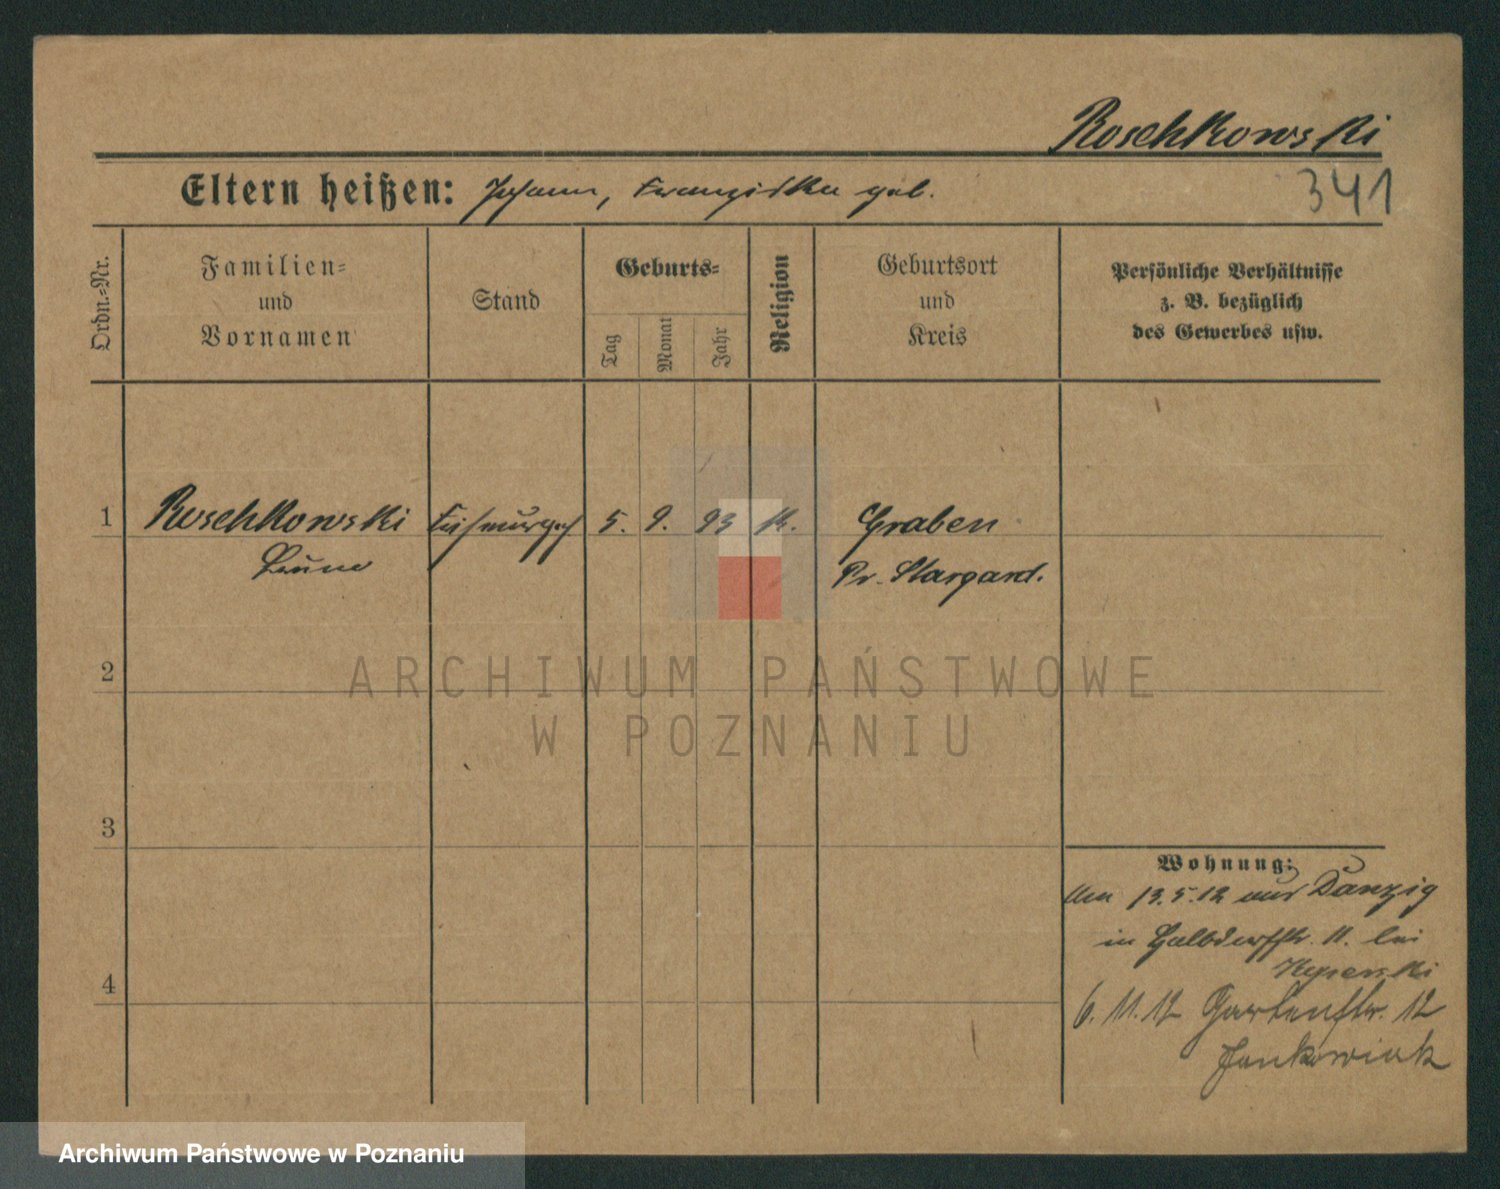 Roschkowski
Eltern heißen: Johann, Franziska geb.
341
Ordn.-Nr.
Familien-
und
Vornamen
Stand
Geburts-
Tag
Monat
Jahr
Religion
Geburtsort
und
Kreis
Persönliche Verhältnisse
z. B. bezüglich
des Gewerbes usw.
1 Roschkowski 5. 9. 93 K. Graben
Bruno
Pr. Stargard.
2
ARCHIWUM PAŃSTWOWE
W POZNANIU
3
Wohnung:
Am 13.5.12 aus Danzig
in 11. bei
4
6. 11. 12 Gartenstr. 12
Jankowiak
Archiwum Państwowe w Poznaniu